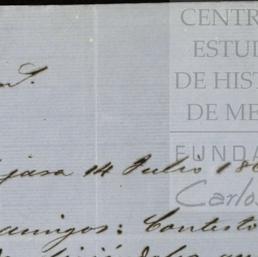 CENTR
ESTUD
DE HIST
DE ME
FUNDA
Carlos
S.
jasa 14 Julio 186
amigos: Contesto